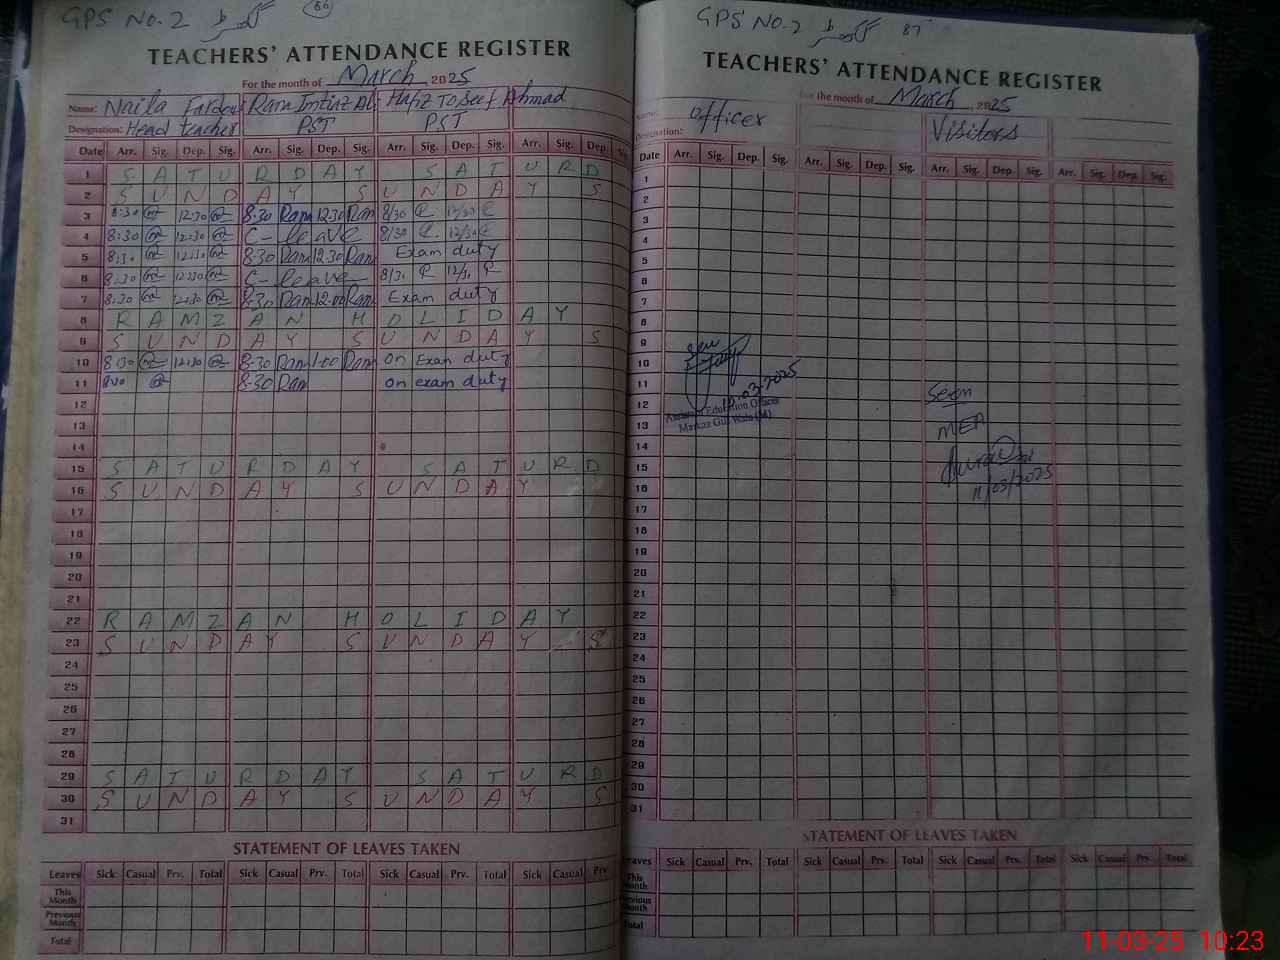 GPS NO.2 86
TEACHERS' ATTENDANCE REGISTER
For the month of March 2025
Name: Naila Fardous Rana Imtiaz Al Hafiz Toseef Ahmad
Designation: Head teacher PST PST
Date Arr. Sig. Dep. Sig. Arr. Sig. Dep. Sig. Arr. Sig. Dep. Sig. Arr. Sig. Dep. Sig.
1 S A T U R D A Y S A T U R D
2 S U N D A Y S U N D A Y S
3 8:30 12:30 8.30 Ram 12.30 Ram 8/30 12/30
4 8:30 12:30 C- leave 8/30 12/30
5 8:30 12:30 8-30 Ram 12.30 Ram Exam duty
6 8:30 12:30 C- leave 8/30 12/30
7 8:30 12:30 8-30 Ram 12:00 Ram Exam duty
8 R A M Z A N H O L I D A Y
9 S U N D A Y S U N D A Y S
10 8:30 12:30 8-30 Ram 1:00 Ram On Exam duty
11 8:30 8-30 Ram On exam duty
12
13
14
15 S A T U R D A Y S A T U R D
16 S U N D A Y S U N D A Y
17
18
19
20
21
22 R A M Z A N H O L I D A Y
23 S U N D A Y S U N D A Y S
24
25
26
27
28
29 S A T U R D A Y S A T U R D
30 S U N D A Y S U N D A Y S
31
STATEMENT OF LEAVES TAKEN
Leaves Sick Casual Prv. Total Sick Casual Prv. Total Sick Casual Prv. Total Sick Casual Prv
This Month
Previous Month
Total
GPS NO.2 87
TEACHERS' ATTENDANCE REGISTER
For the month of March, 2025
Name: Officer Visitors
Designation:
Date Arr. Sig. Dep. Sig. Arr. Sig. Dep. Sig. Arr. Sig. Dep. Sig. Arr. Sig. Dep. Sig.
1
2
3
4
5
6
7
8
9
10 Seen
11 10.03.2025 Seen
12 Assistant Education Officer
13 Markaz Gul Wala (M) MEA
14
15
16 11/03/2025
17
18
19
20
21
22
23
24
25
26
27
28
29
30
31
STATEMENT OF LEAVES TAKEN
Leaves Sick Casual Prv. Total Sick Casual Prv. Total Sick Casual Prv. Total Sick Casual Prv. Total
This Month
Previous Month
Total
11-03-25 10:23